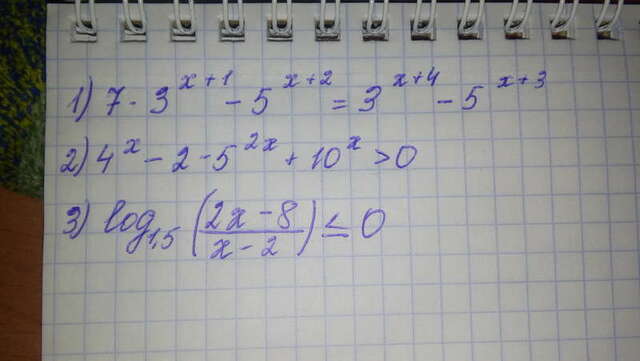 1) 7 · 3^{x+1} - 5^{x+2} = 3^{x+4} - 5^{x+3}
2) 4^x - 2 · 5^{2x} + 10^x > 0
3) log_{1,5} ((2x - 8)/(x - 2)) ≤ 0